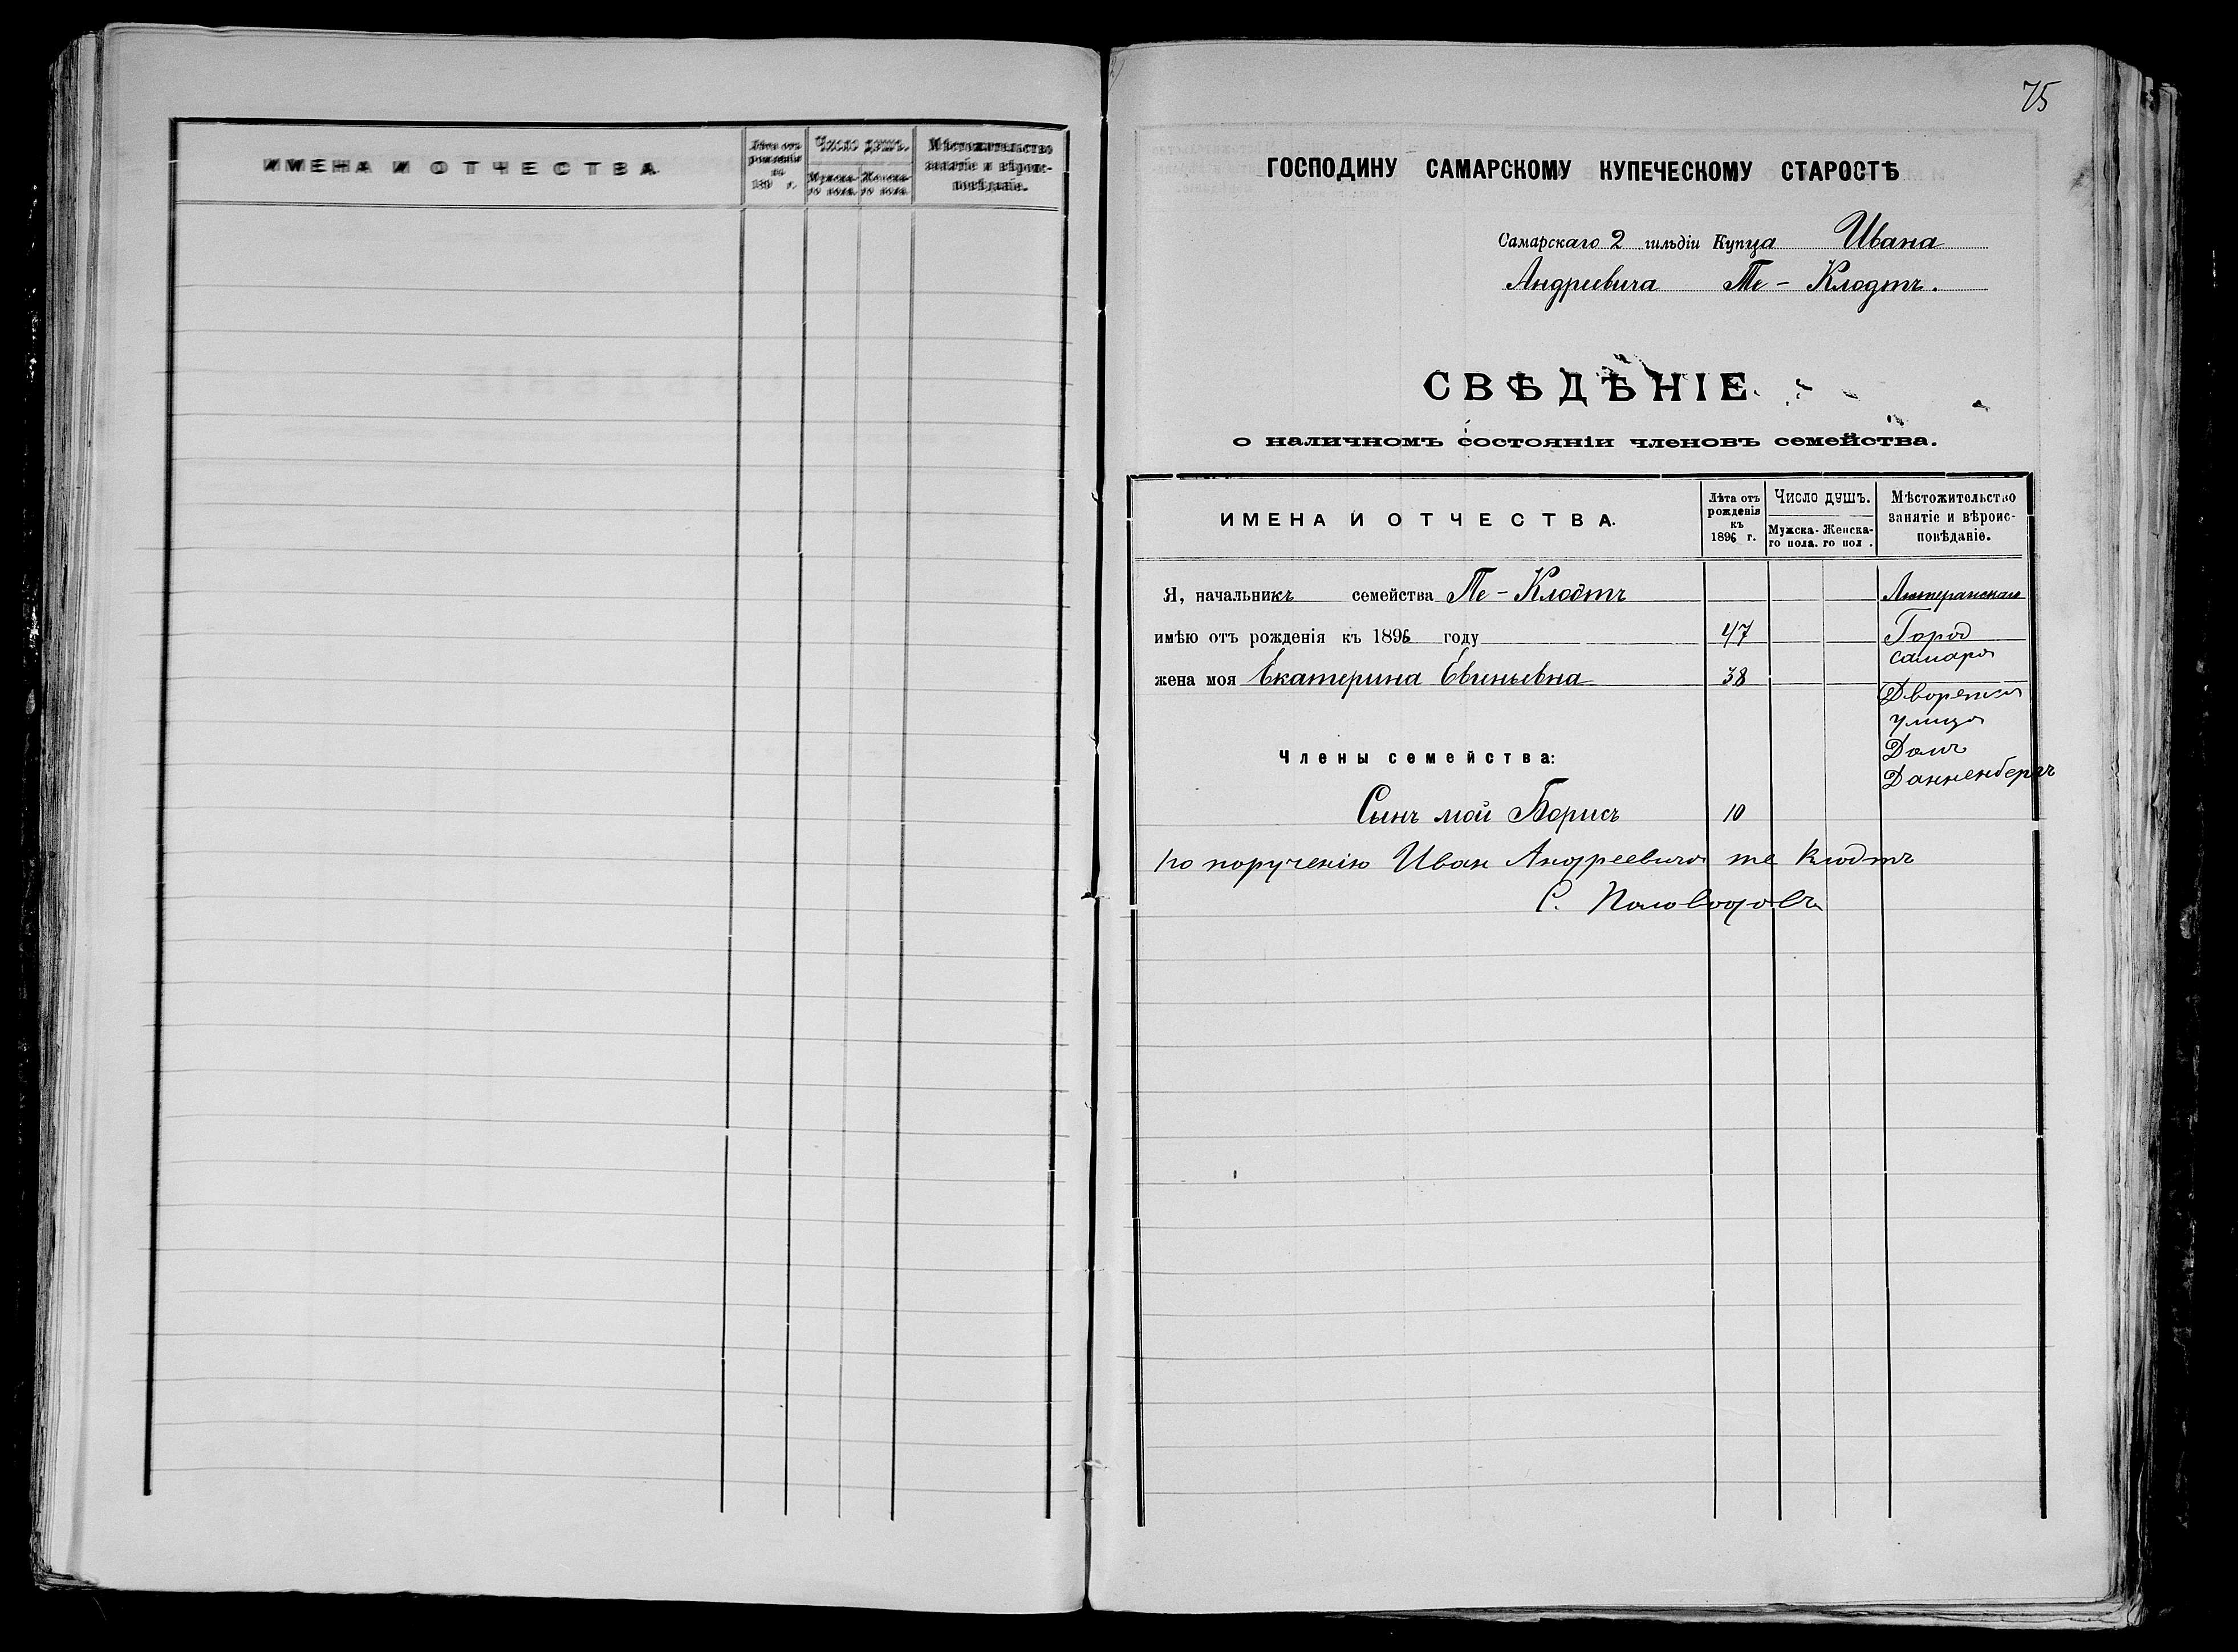 ИМЕНА И ОТЧЕСТВА
Лѣта отъ рожденія къ 189 г.
Число душъ.
Мужска-го пола.
Женска-го пола.
Мѣстожительство занятіе и вѣроис-повѣданіе.
75
ГОСПОДИНУ САМАРСКОМУ КУПЕЧЕСКОМУ СТАРОСТѢ
Самарскаго 2 гильдіи Купца Ивана
Андреевича Те-Клодтъ.
СВѢДѢНІЕ
о наличномъ состояніи членовъ семейства.
ИМЕНА И ОТЧЕСТВА.
Лѣта отъ рожденія къ 1896 г.
Число душъ.
Мужска-го пола.
Женска-го пол .
Мѣстожительство занятіе и вѣроис-повѣданіе.
Я, начальникъ семейства Те-Клодтъ Лютеранская
имѣю отъ рожденія къ 1896 году 47 Город
Самара
жена моя Екатерина Евгеньевна 38
Дворенская
улица
Домъ
Члены семейства:
Данненбергъ
Сынъ мой Борисъ 10
по порученію Иван Андреевича те Клодтъ
С. Половодовъ